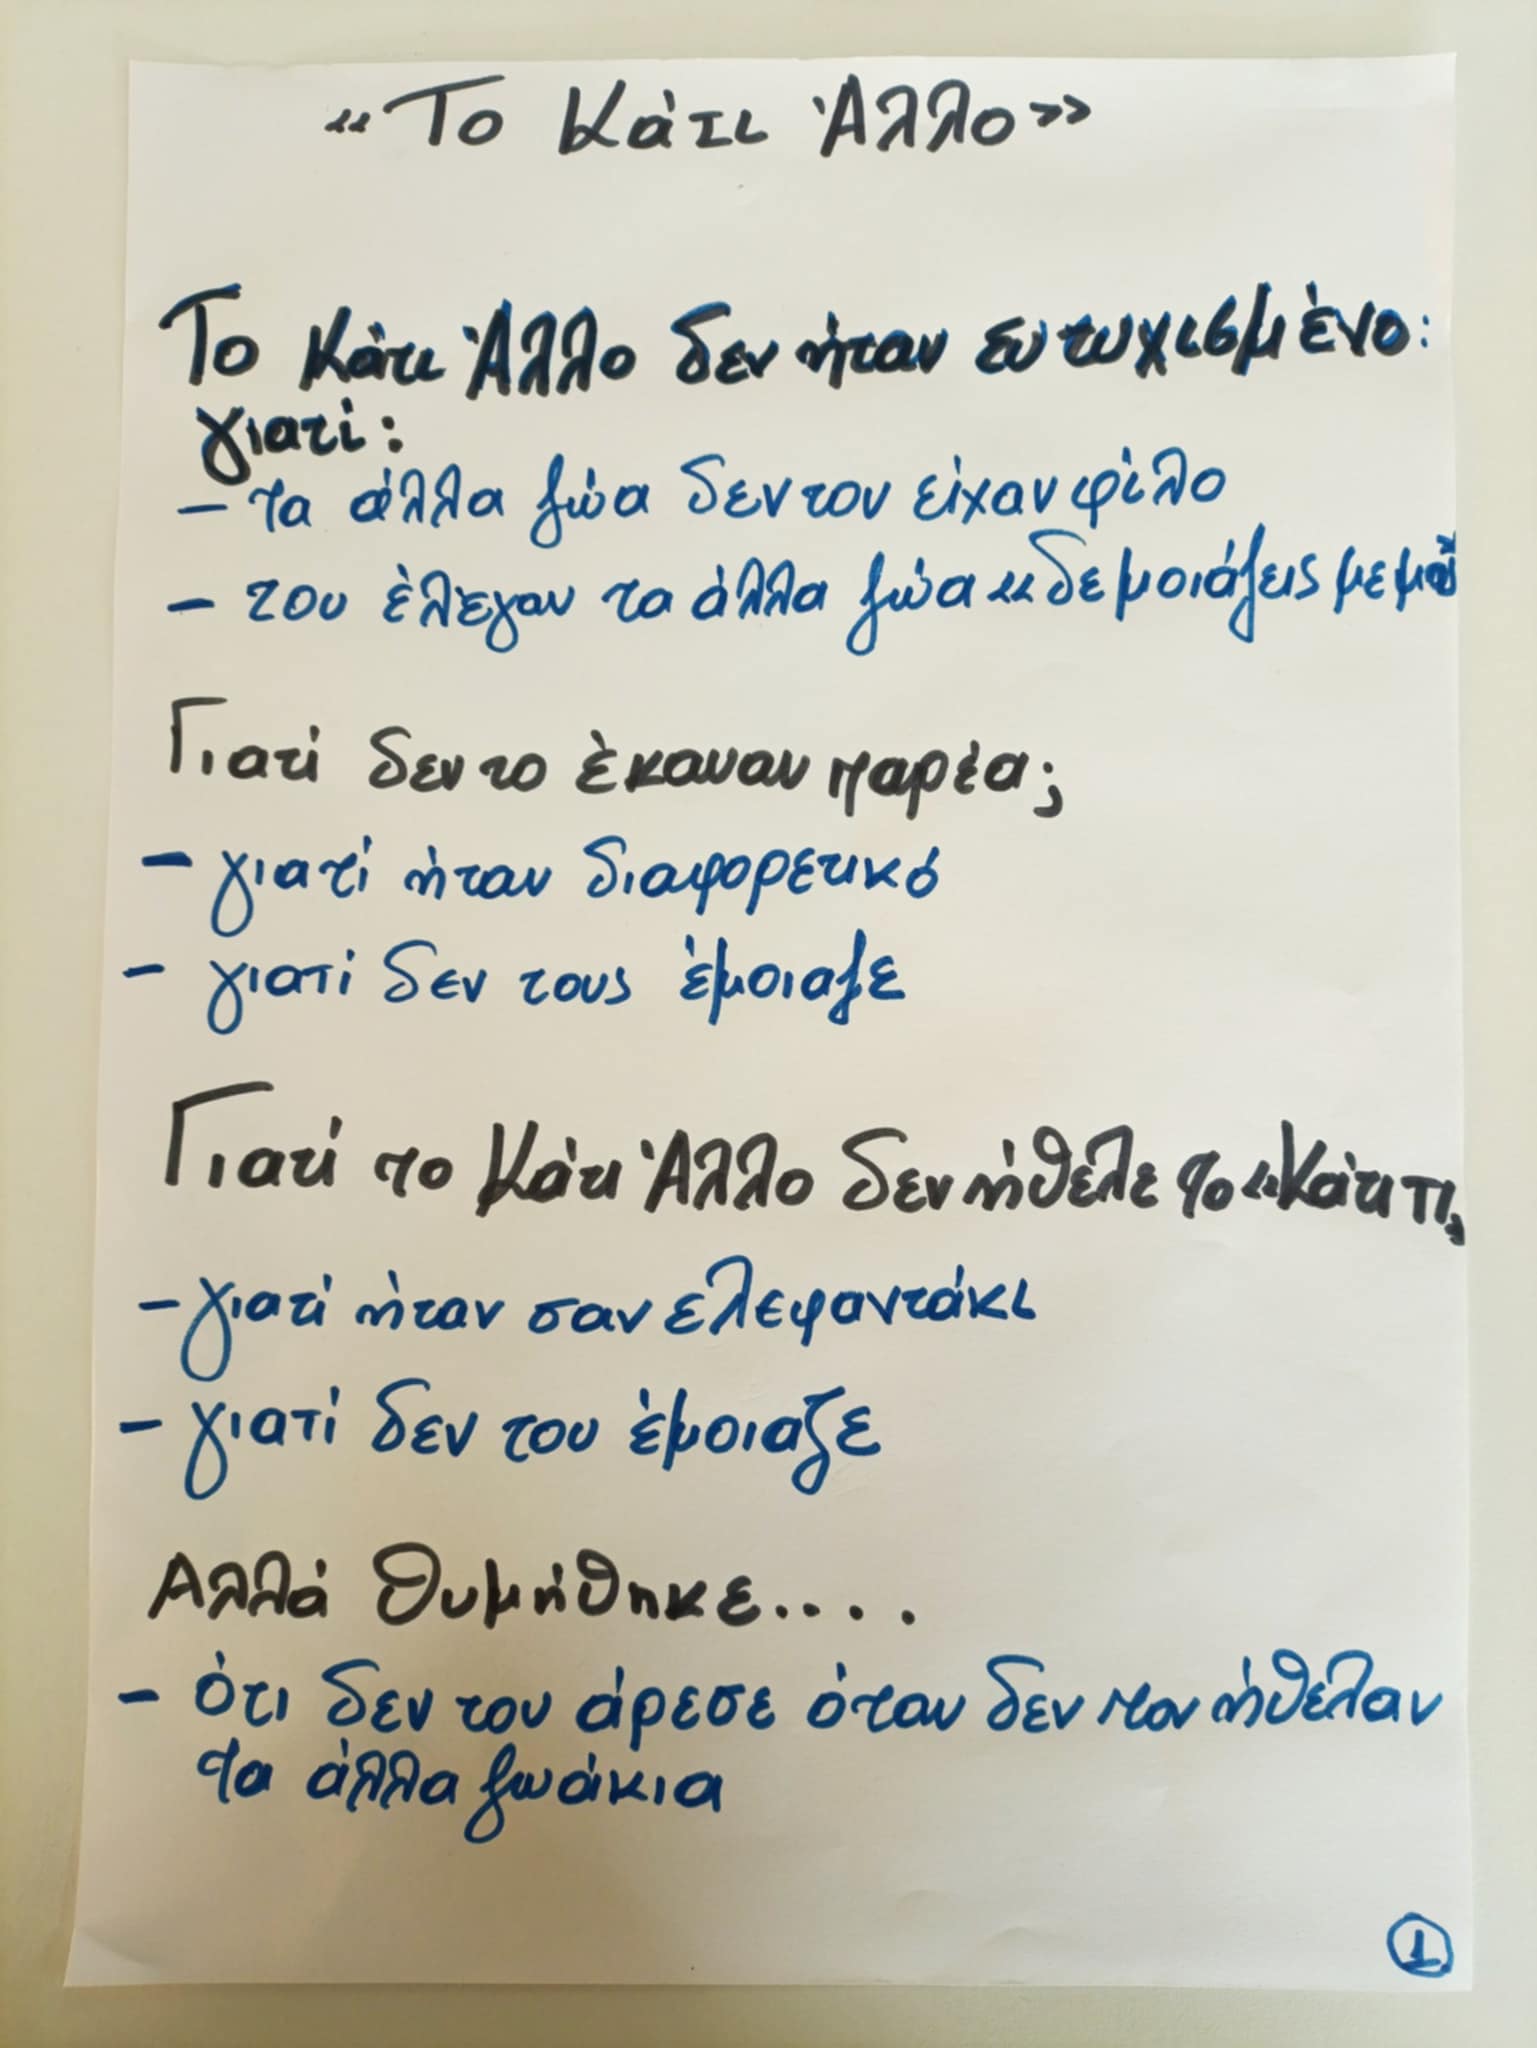 «Το Κάτι Άλλο»
Το Κάτι Άλλο δεν ήταν ευτυχισμένο:
γιατί:
- τα άλλα ζώα δεν τον είχαν φίλο
- του έλεγαν τα άλλα ζώα «δε μοιάζεις με μας
Γιατί δεν το έκαναν παρέα;
- γιατί ήταν διαφορετικό
- γιατί δεν τους έμοιαζε
Γιατί το Κάτι Άλλο δεν ήθελε το «Κάτι τι;
- γιατί ήταν σαν ελεφαντάκι
- γιατί δεν του έμοιαζε
Αλλά θυμήθηκε....
- ότι δεν του άρεσε όταν δεν τον ήθελαν
τα άλλα ζωάκια
1